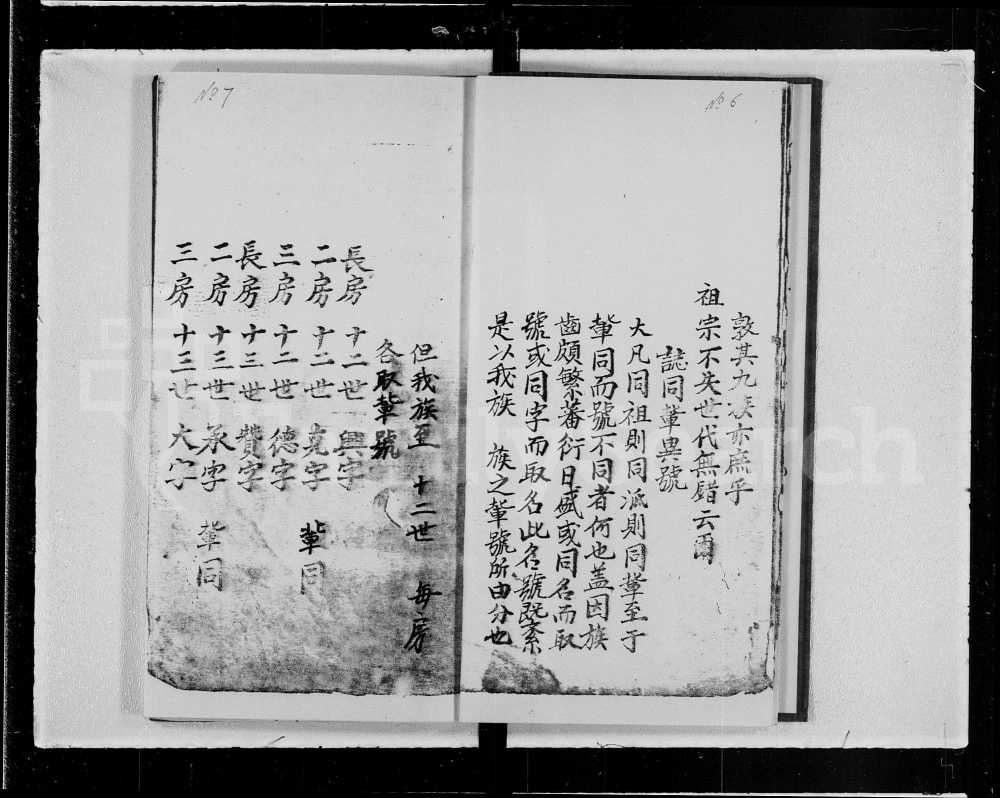 № 6
敦其九族亦庶乎
祖宗不失世代無錯云爾
誌同輩異號
大凡同祖則同派則同輩至于
輩同而號不同者何也盖因族
齒頗繁蕃衍日盛或同名而取
號或同字而取名此名號既紊
是以我族 族之輩號所由分也
№ 7
但我族至 十二世 每房
各取輩號
長房 十二世 興字
二房 十二世 克字 輩同
三房 十二世 德字
長房 十三世 贊字
二房 十三世 承字 輩同
三房 十三世 大字